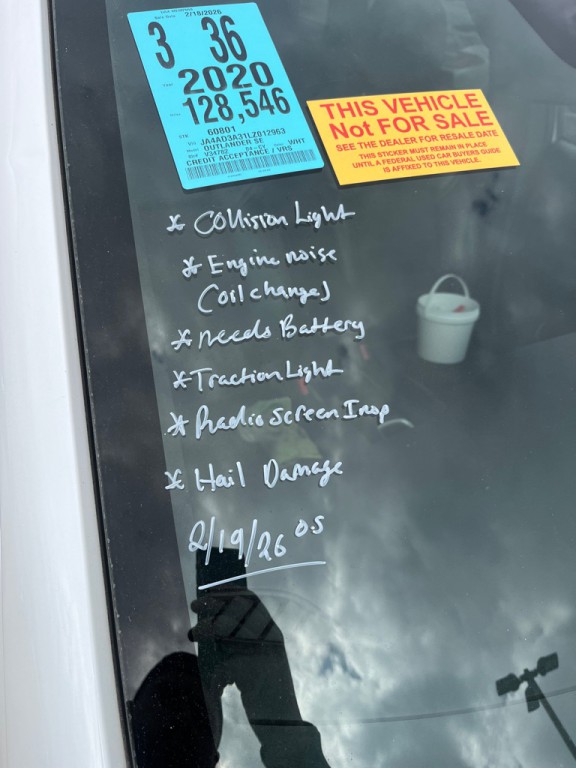 2/18/2026
3 36
2020
128,546
60801
JA4AD3A31LZ012963
OUTLANDER SE
WHT
CREDIT ACCEPTANCE / VRS
THIS VEHICLE
Not FOR SALE
SEE THE DEALER FOR RESALE DATE
THIS STICKER MUST REMAIN IN PLACE
UNTIL A FEDERAL USED CAR BUYERS GUIDE
IS AFFIXED TO THIS VEHICLE.
* Collision Light
* Engine noise
(oil change)
* needs Battery
* Traction Light
* Radio Screen Inop
* Hail Damage
2/19/26 OS